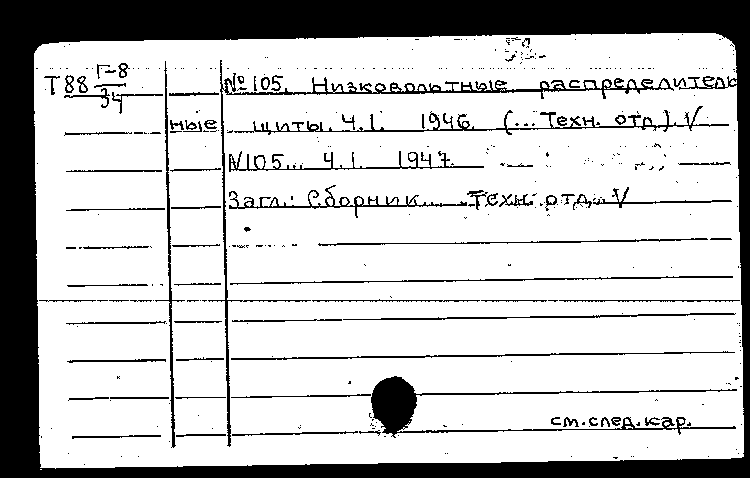 Т88 Г-8/34
№105. Низковольтные распределитель
ные щиты. Ч.I. 1946 (... Техн. отд.). √
N105... Ч.I. 1947
Загл.: Сборник... Техн. отд. √
см.след.кар.